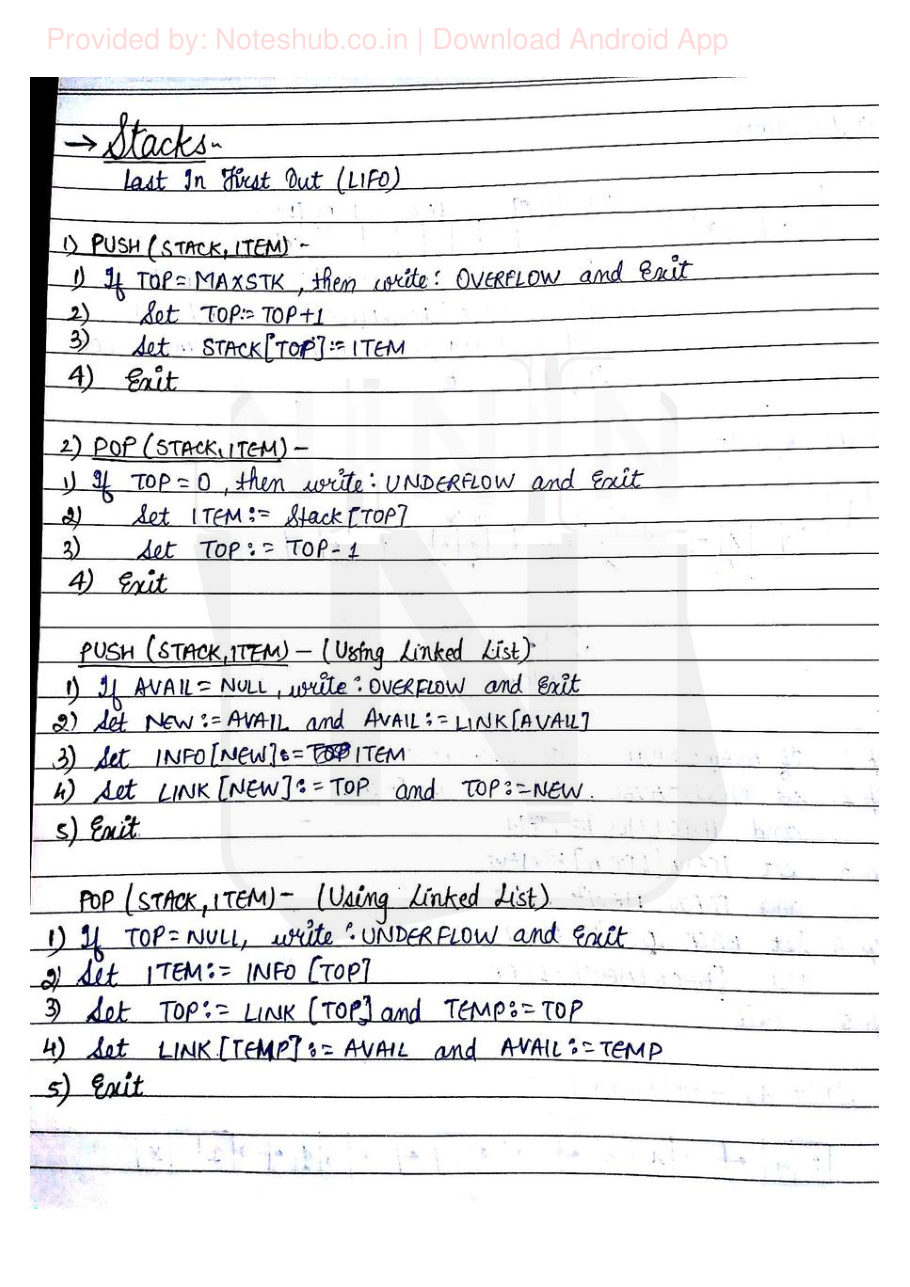 Provided by: Noteshub.co.in | Download Android App
→ Stacks-
Last In First Out (LIFO)
1) PUSH (STACK, ITEM) -
1) If TOP = MAXSTK, then write: OVERFLOW and Exit
2) Set TOP:= TOP+1
3) Set STACK[TOP]:= ITEM
4) Exit
2) POP (STACK, ITEM) -
1) If TOP = 0, then write: UNDERFLOW and Exit
2) Set ITEM:= Stack[TOP]
3) Set TOP:= TOP-1
4) Exit
PUSH (STACK, ITEM) - (Using Linked List)
1) If AVAIL = NULL, write: OVERFLOW and Exit
2) Set NEW:= AVAIL and AVAIL:= LINK[AVAIL]
3) Set INFO[NEW]:= ITEM
4) Set LINK[NEW]:= TOP and TOP:=NEW.
5) Exit
POP (STACK, ITEM) - (Using Linked List)
1) If TOP = NULL, write: UNDERFLOW and Exit
2) Set ITEM:= INFO [TOP]
3) Set TOP:= LINK [TOP] and TEMP:= TOP
4) Set LINK [TEMP]:= AVAIL and AVAIL:= TEMP
5) Exit